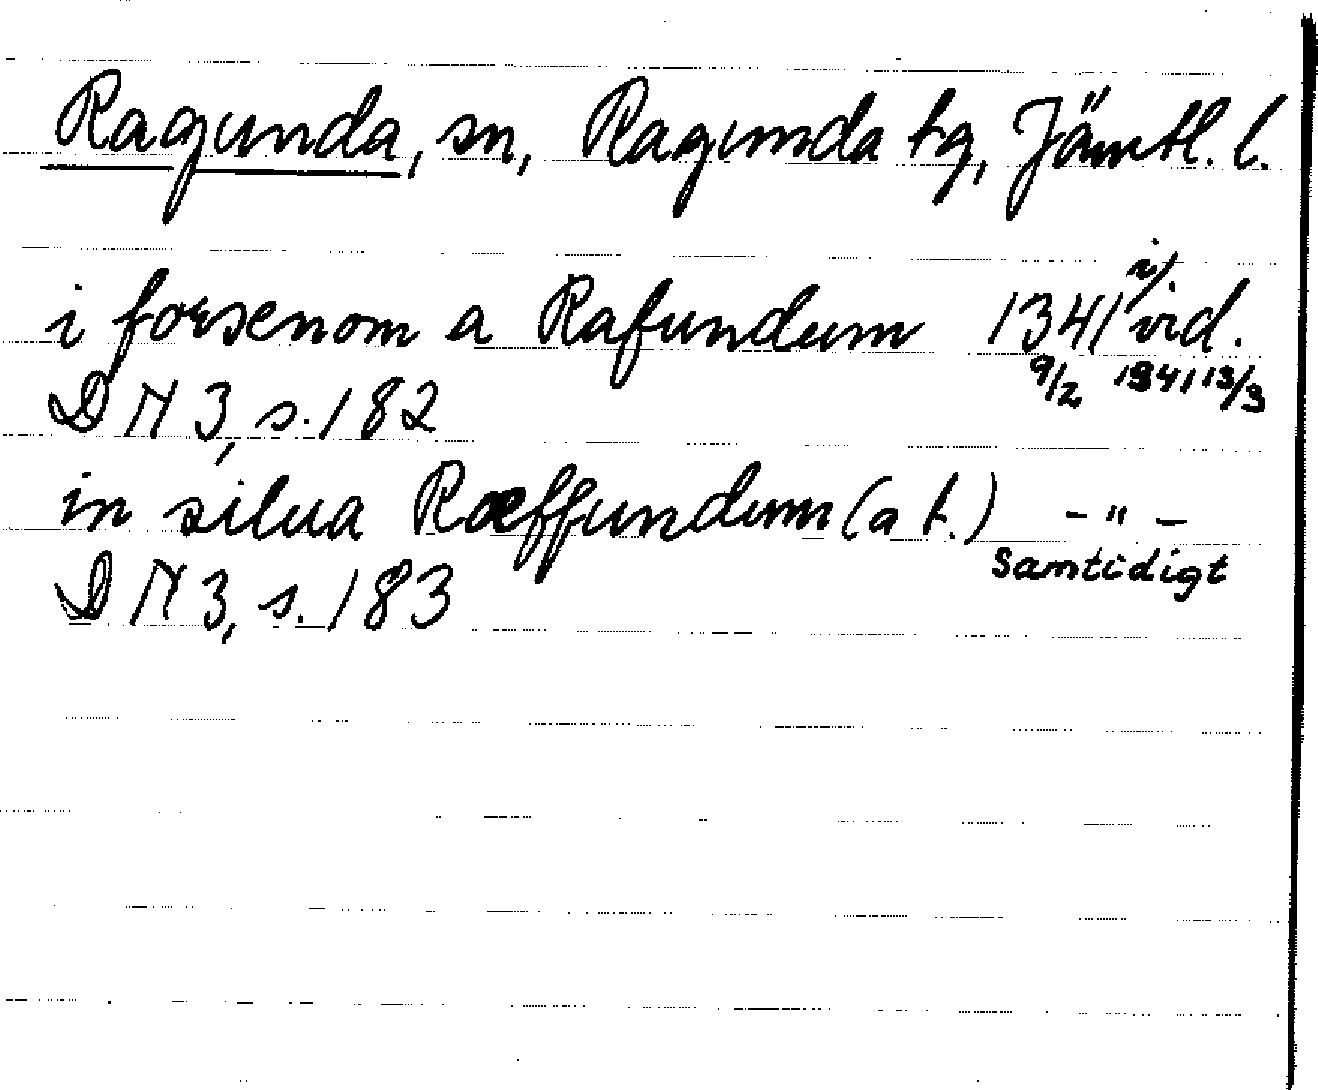 Ragunda, sn, Ragunda tg, Jämtl. l.
i forsenom a Rafundum 1341 i vid.
9/2 1341 13/3
DN 3, s. 182
in silua Ræffundum (a t.) -"-
samtidigt
DN 3, s. 183